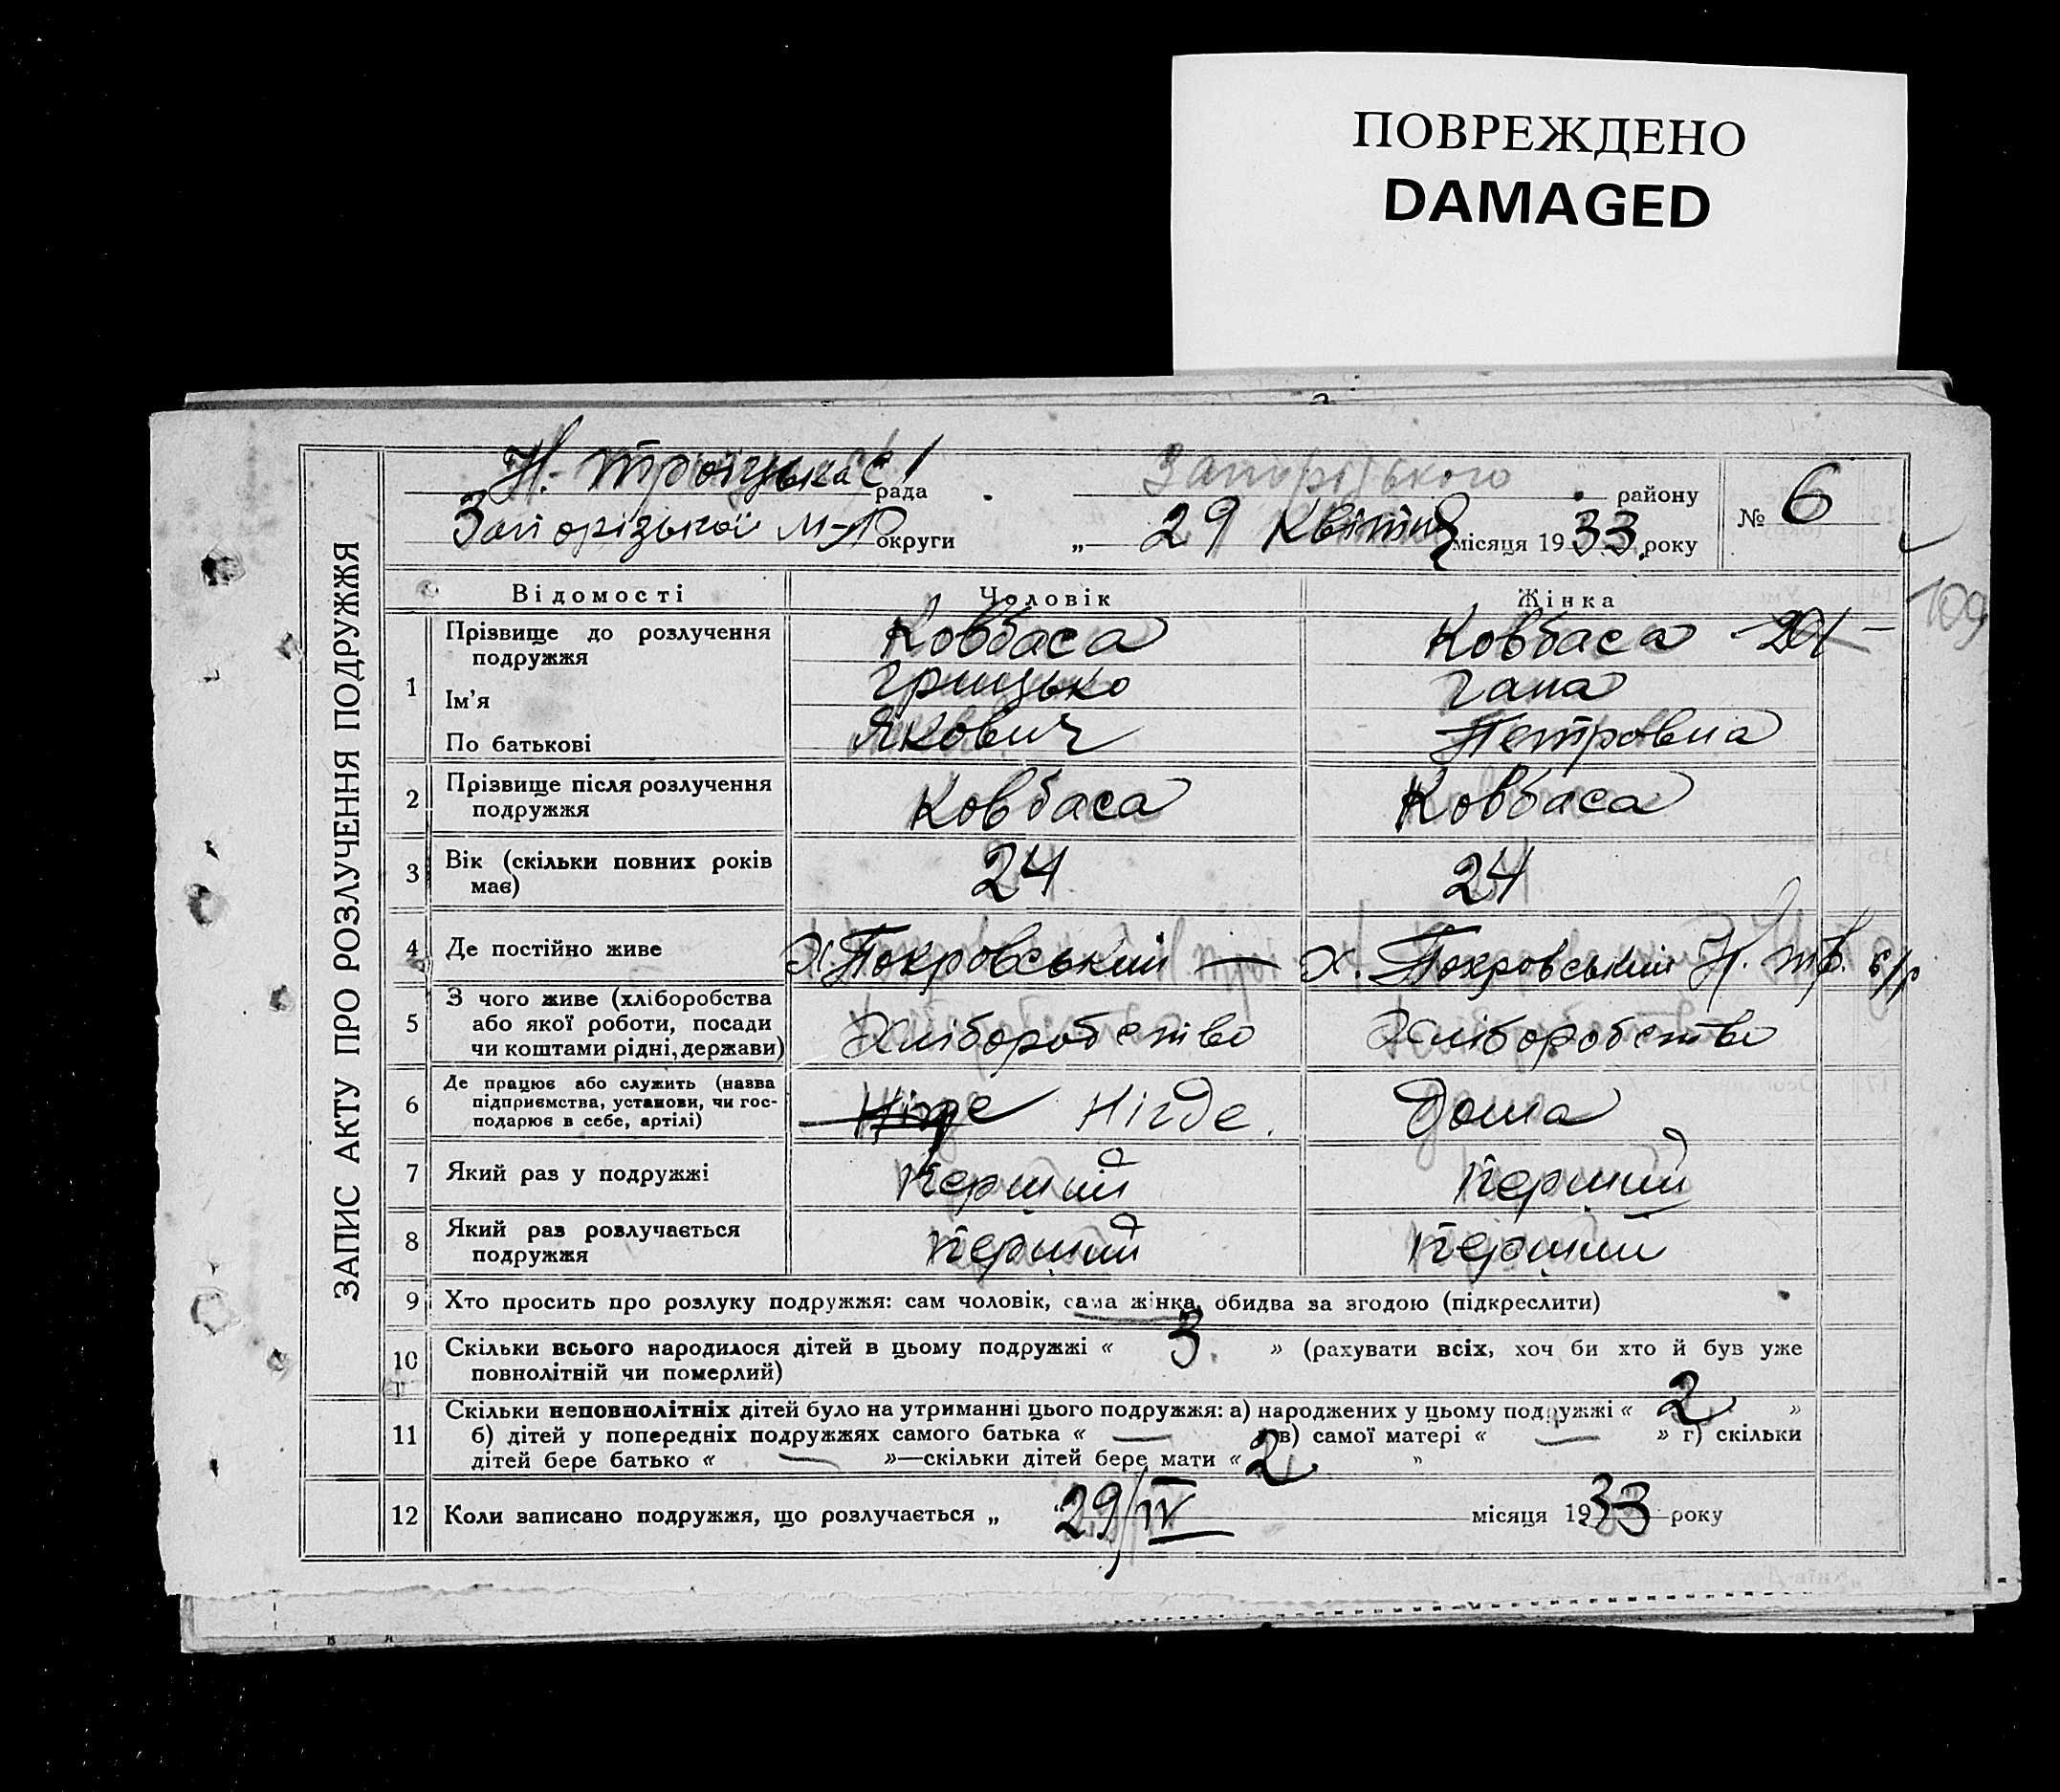 ПОВРЕЖДЕНО
DAMAGED
ЗАПИС АКТУ ПРО РОЗЛУЧЕННЯ ПОДРУЖЖЯ
Н. Троїцька с/рада
Запорізького району
№ 6
Запорізької М-Р округи
„ 29 Квітня місяця 1933 року
109
Відомості Чоловік Жінка
1 Прізвище до розлучення подружжя Ковбаса Ковбаса
Ім'я Грицько Гана
По батькові Якович Петровна
2 Прізвище після розлучення подружжя Ковбаса Ковбаса
3 Вік (скільки повних років має) 24 24
4 Де постійно живе х. Покровський — х. Покровський Н. тр. с/р
5 З чого живе (хліборобства або якої роботи, посади чи коштами рідні, держави) Хліборобство Хліборобство
6 Де працює або служить (назва підприємства, установи, чи господарює в себе, артілі) Нігде Нігде. Дома
7 Який раз у подружжі Перший Перший
8 Який раз розлучається подружжя Перший Перший
9 Хто просить про розлуку подружжя: сам чоловік, сама жінка, обидва за згодою (підкреслити)
10 Скільки всього народилося дітей в цьому подружжі « 3 » (рахувати всіх, хоч би хто й був уже
повнолітній чи померлий)
11 Скільки неповнолітніх дітей було на утриманні цього подружжя: а) народжених у цьому подружжі « 2 »
б) дітей у попередніх подружжях самого батька « — » в) самої матері « — » г) скільки
дітей бере батько « — »—скільки дітей бере мати « 2 »
12 Коли записано подружжя, що розлучається „ 29/IV місяця 1933 року